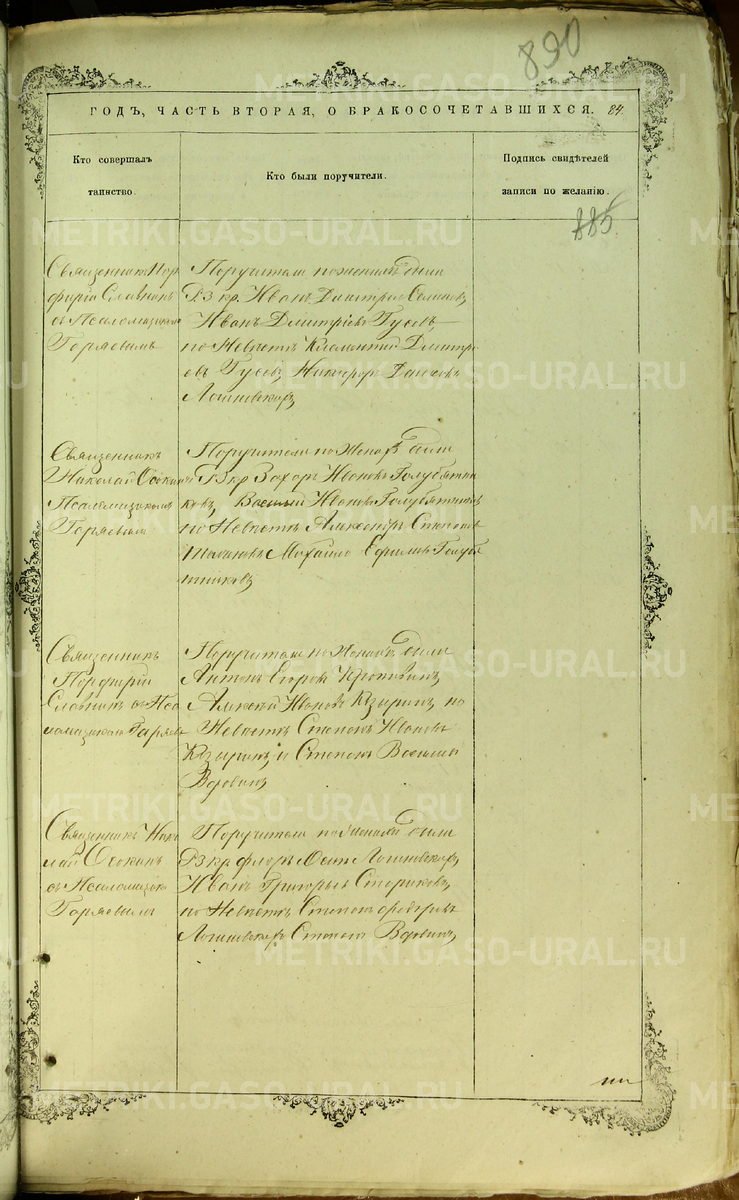 890
ГОДЪ, ЧАСТЬ ВТОРАЯ, О БРАКОСОЧЕТАВШИХСЯ. 84.
Кто совершалъ
таинство.
Кто были поручители.
Подпись свидѣтелей
записи по желанію.
885.
Священникъ Пор
фирій Славнинъ
съ Псаломщикомъ
Горяевымъ
Поручители по женихѣ были
кр. Иванъ Дмитріевъ
Иванъ Дмитріевъ Гусевъ,
по Невѣстѣ Климентій Дмитрі
евъ Гусевъ, Никифоръ
Священникъ
Николай Осокинъ
Псаломщикомъ
Горяевымъ
Поручители по Женихѣ были
кр Захаръ Ивановъ Голубятни
ковъ, Василій Ивановъ Голубятниковъ
по Невѣстѣ Александръ Степановъ
Михайло Ефимовъ Голубя
тниковъ
Священникъ
Порфирій
Славнинъ съ Пса
ломщикомъ Горяев
Поручители по Женихѣ были
Антонъ Егоровъ
Алексѣй Ивановъ Казыринъ, по
Невѣстѣ Степанъ Ивановъ
Казыринъ и Степанъ Василье
Вдовинъ
Священникъ Нико
лай Осокинъ
съ Псаломщико
Горяевымъ
Поручители по Женихѣ были
кр Флоръ
Иванъ Григорьевъ Стариковъ,
по Невѣстѣ Степанъ Федоровъ
Степанъ Вдовинъ
METRIKI.GASO-URAL.RU